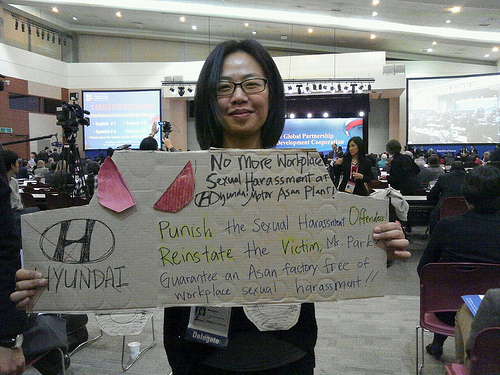 Global Partnership
Development Cooperation
No More Workplace
Sexual Harassment at
Hyundai Motor Asan Plant!
Punish the Sexual Harassment Offenders
Reinstate the Victim, Ms. Park
Guarantee an Asan factory free of
workplace sexual harassment!!
H
HYUNDAI
Delegate